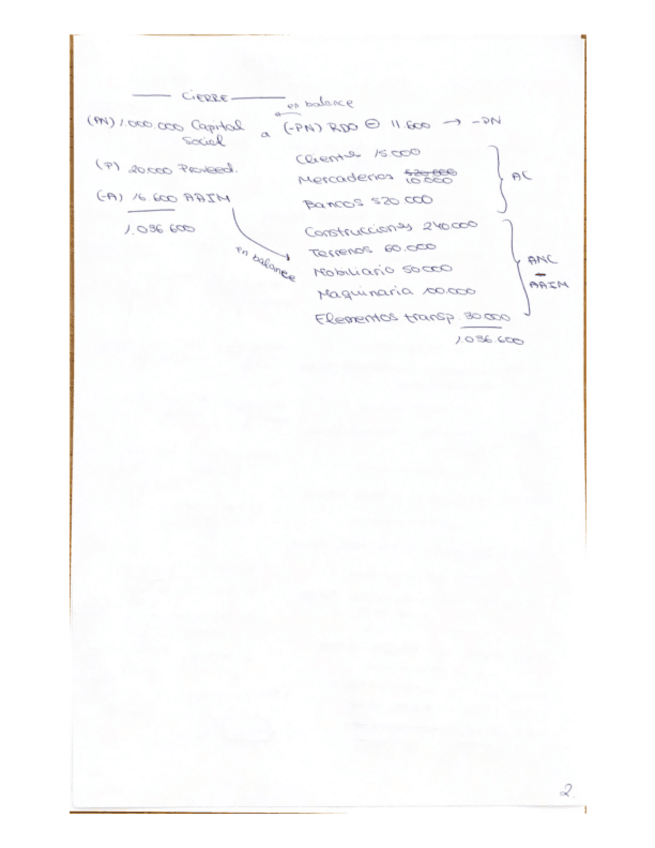 CIERRE
en balance
(PN) 1.000.000 Capital Social a (-PN) RDO ⊖ 11.600 → -PN
Clientes 15.000
(P) 20.000 Proveed.
Mercaderías 520.000
10.000
AC
(-A) 16.600 AAIM
Bancos 520.000
1.036.600
Construcciones 240.000
en balance
Terrenos 60.000
Mobiliario 50.000
ANC
-
AAIM
Maquinaria 100.000
Elementos transp. 30.000
1.036.600
2.